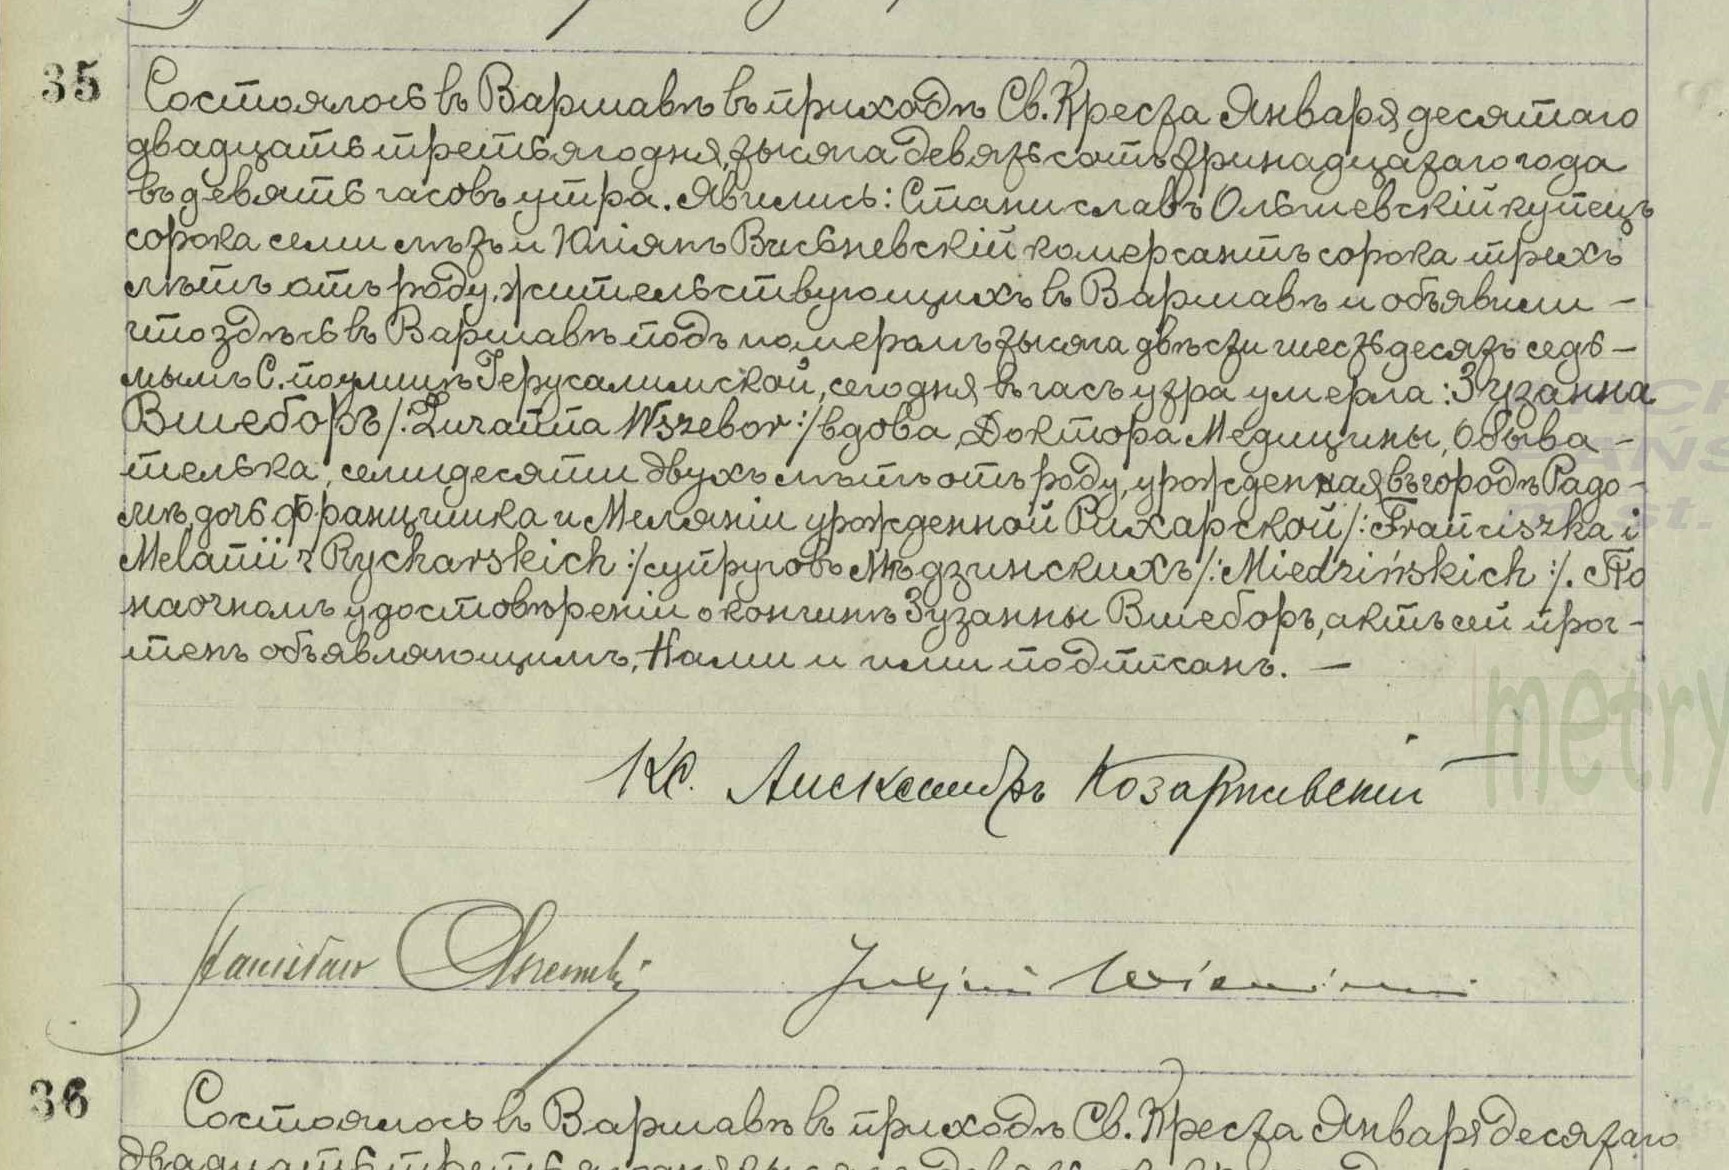 35
Состоялось въ Варшавѣ въ приходѣ Св. Креста Января десятаго
двадцать третьяго дня, тысяча девятьсотъ тринадцатаго года
въ девять часовъ утра. Явились: Станиславъ Ольшевскій купецъ
сорока семи лѣтъ и Юліянъ Висьневскій комерсантъ сорока трехъ
лѣтъ отъ роду, жительствующихъ въ Варшавѣ и объявили –
что здѣсь въ Варшавѣ подъ номеромъ тысяча двѣсти шестьдесятъ седь –
мымъ С. по улицѣ Іерусалимской, сегодня въ часъ утра умерла: Зузанна
Вшеборъ /: Zuzanna Wszebor :/ вдова Доктора Медицины, Обыва –
телька, семидесяти двухъ лѣтъ отъ роду, урожденная въ городѣ Радо –
мѣ, дочь Францишка и Меляніи урожденной Рихарской /: Franciszka i
Melanii z Rycharskich :/ супруговъ Мѣдзинскихъ /: Miedzińskich :/. По
наочномъ удостовѣреніи о кончинѣ Зузанны Вшеборъ, актъ сей проч –
тенъ объявляющимъ, Нами и ими подписанъ. —
Кс. Александръ
Stanisław Olszewski Juljan Wiśniewski
36
Состоялось въ Варшавѣ въ приходѣ Св. Креста Января десятаго
двадцать третьяго дня
metry